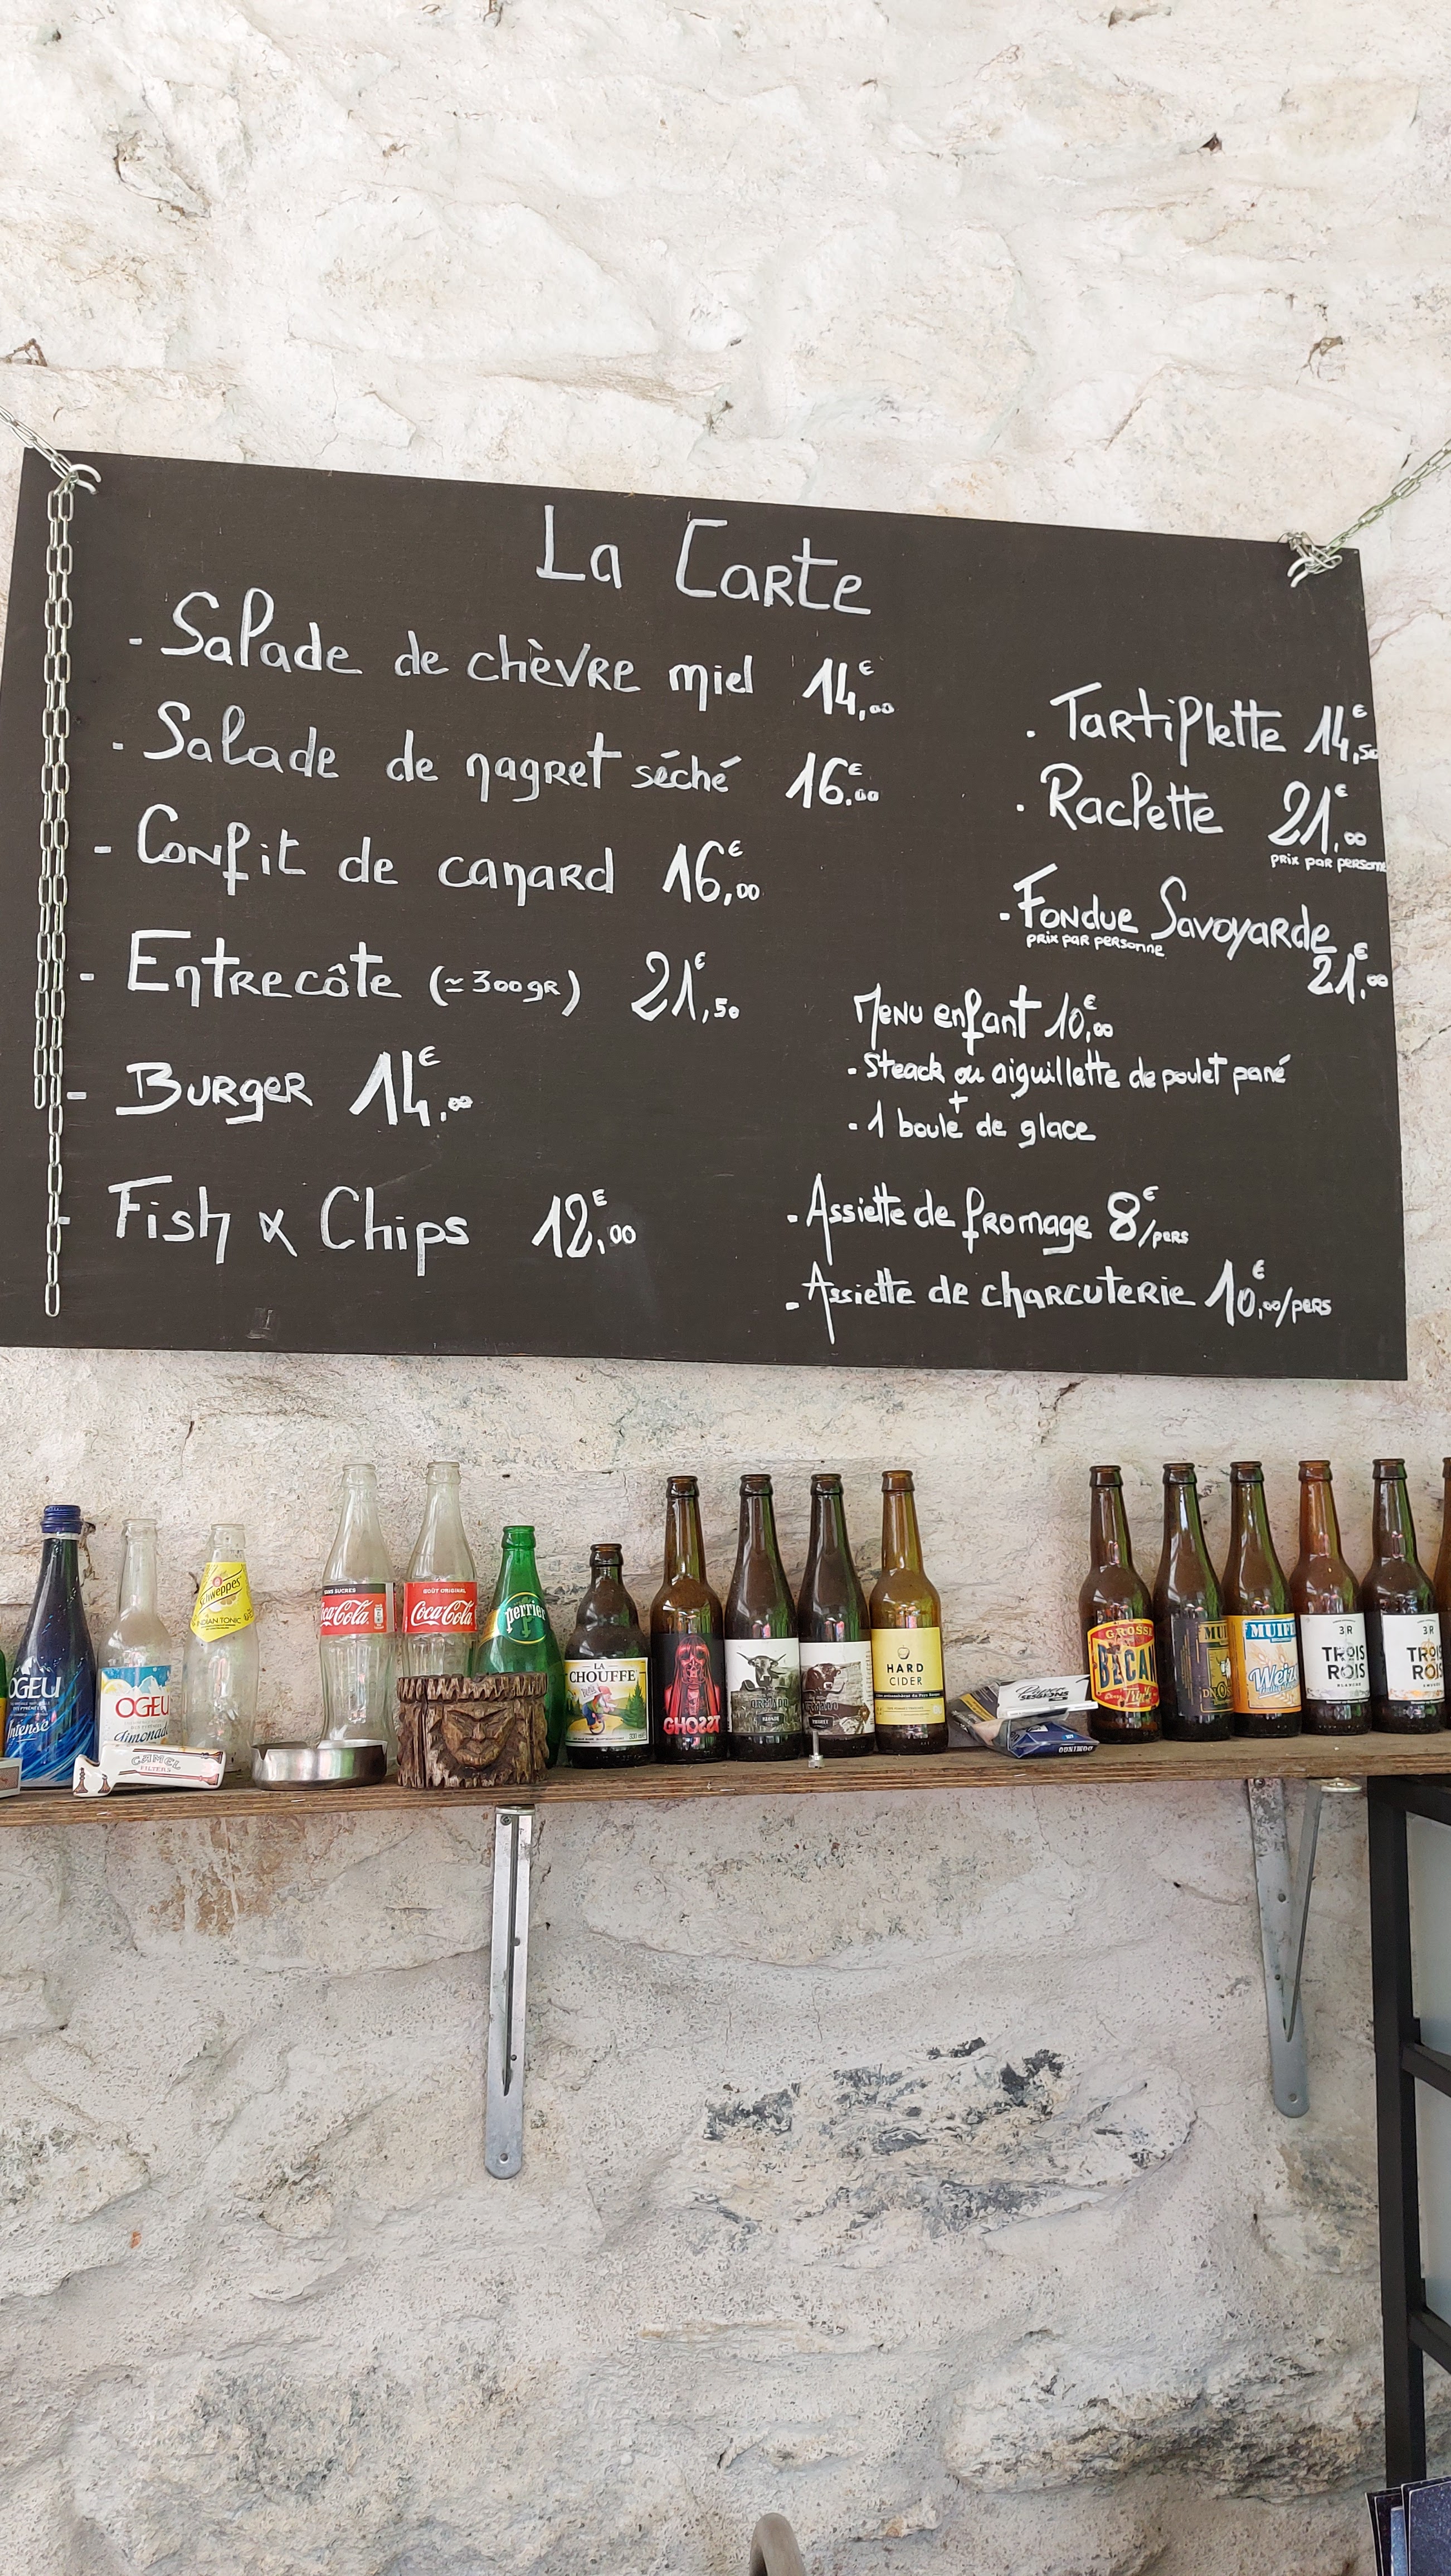 La Carte
- Salade de chèvre miel 14,00€
- Salade de magret séché 16,00€
- Confit de canard 16,00€
- Entrecôte (≃300gr) 21,50€
- Burger 14,00€
- Fish & Chips 12,00€
. Tartiflette 14,50€
. Raclette 21,00€
prix par personne
- Fondue Savoyarde
prix par personne
21,00€
Menu enfant 10,00€
- Steack ou aiguillette de poulet pané
+
- 1 boule de glace
- Assiette de fromage 8€/pers
- Assiette de charcuterie 10,00€/pers
OGEU
Intense
OGEU
Limonade
Schweppes
INDIAN TONIC
SANS SUCRES
Coca-Cola
GOÛT ORIGINAL
Coca-Cola
perrier
LA
CHOUFFE
GHOST
HARD
CIDER
GROSSE
BÉCANE
MUIFL
Weiz
3R
TROIS
ROIS
BLANCHE
3R
TROIS
ROIS
CAMEL
FILTERS
DOMINGO